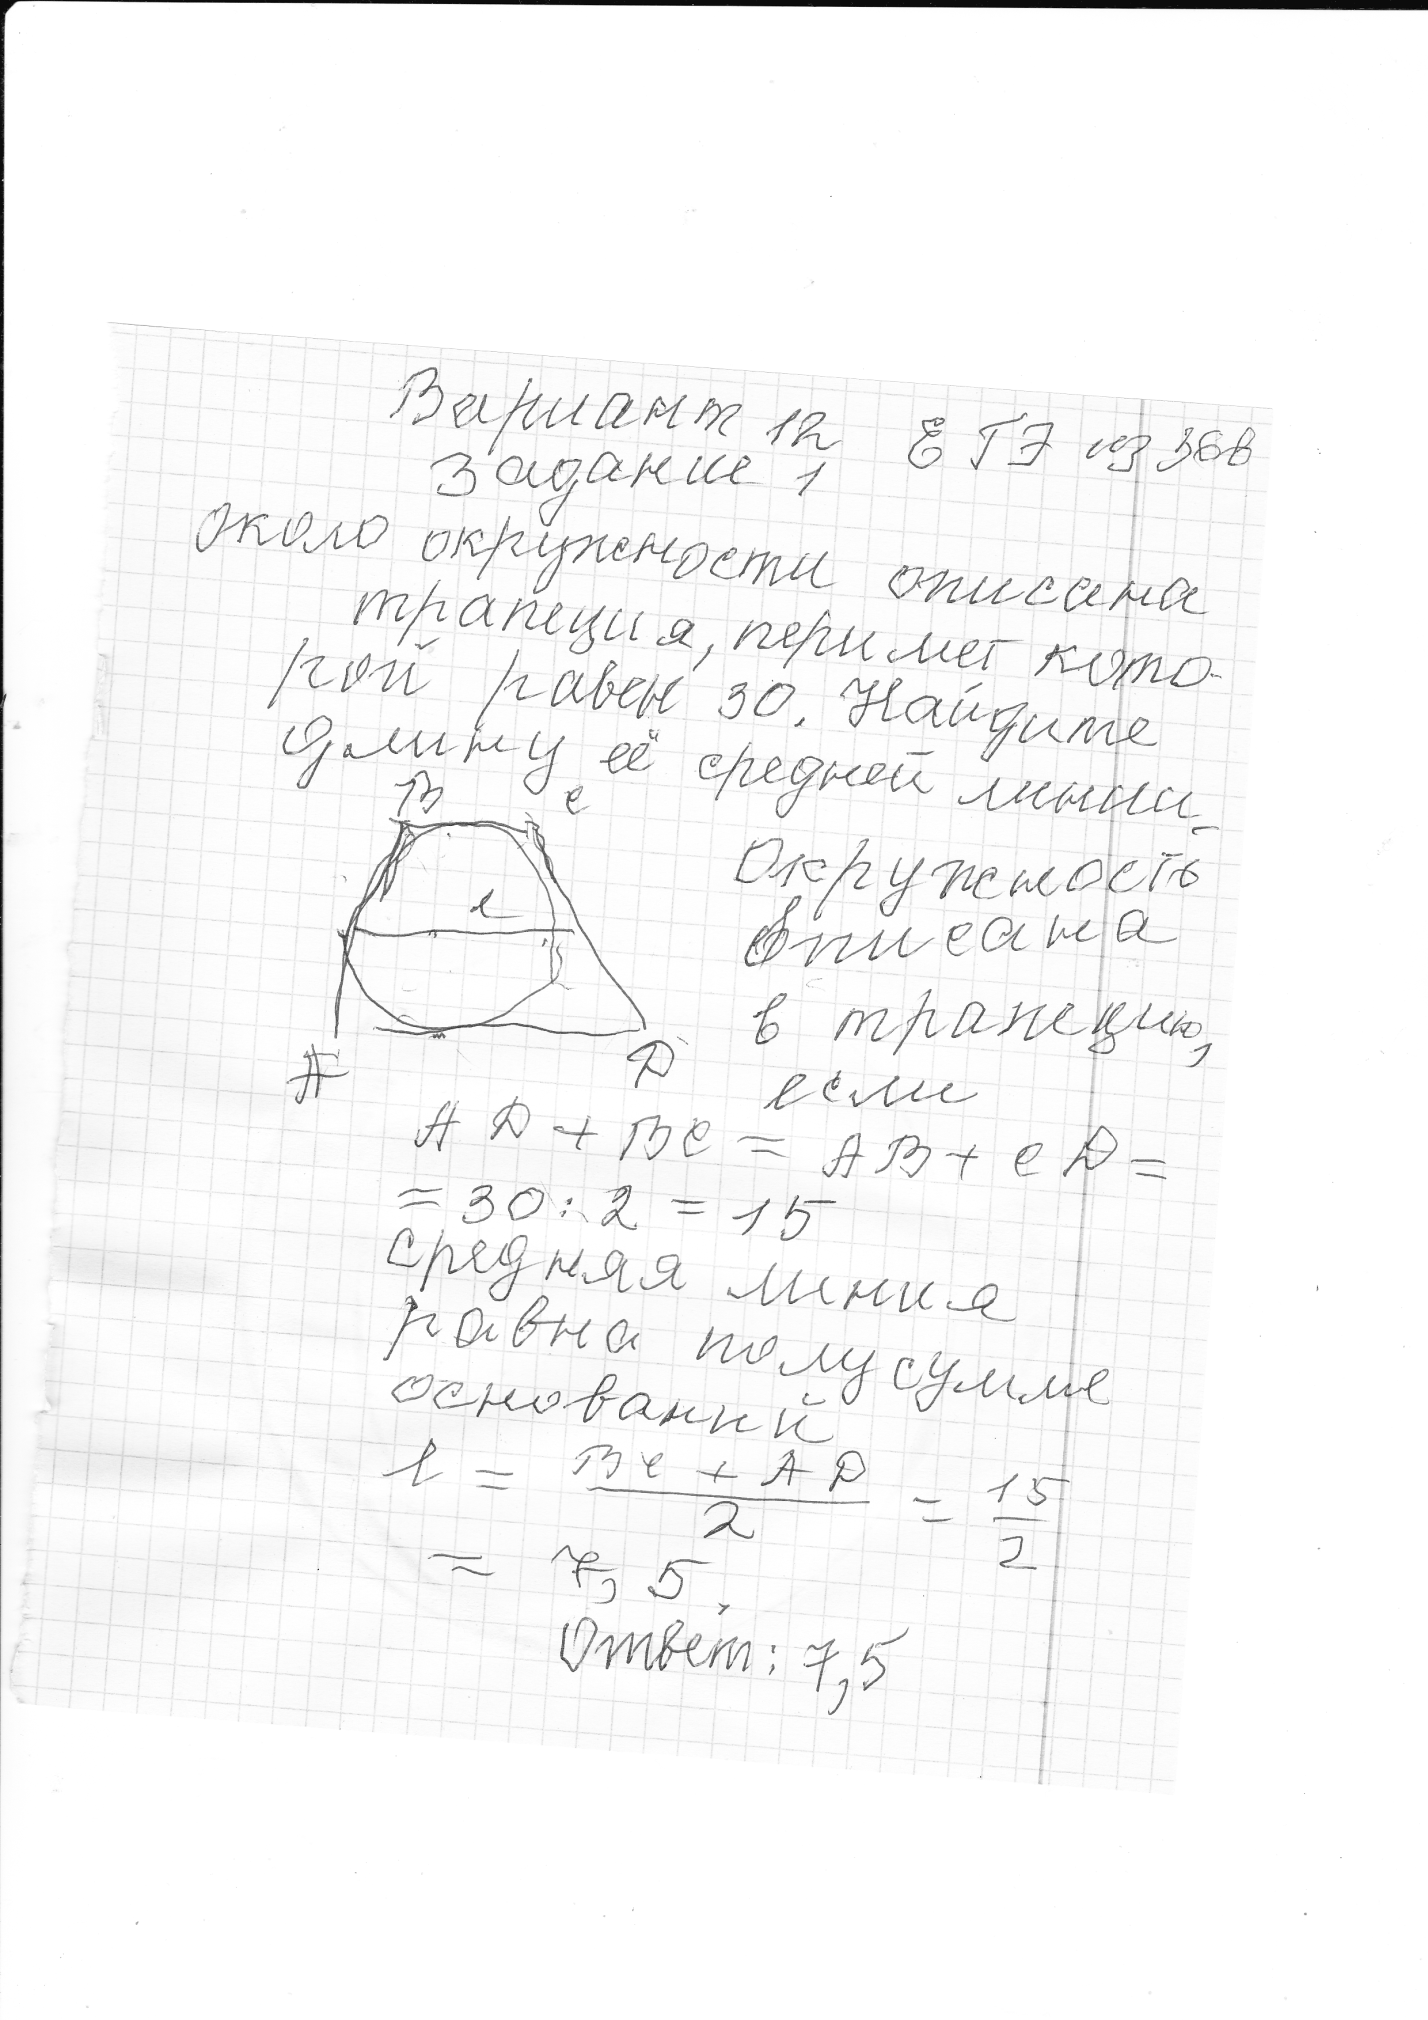 Вариант 12 ЕГЭ из 36в
Задание 1
около окружности описана
трапеция, перимет кото-
рой равен 30. Найдите
длину её средней линии.
B C
Окружность
вписана
l
в трапецию,
A D
если
AD + BC = AB + CD =
= 30 : 2 = 15
средняя линия
равна полусумме
оснований
l = (BC + AD)/2 = 15/2
= 7,5.
Ответ: 7,5